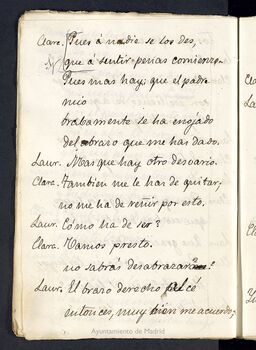 Clare. Pues á nadie se los des,
que á sentir penas comienzo.
Pues mas hay; que el padre
mio
brabamente se ha enojado
del abrazo que me has dado.
Laur. Mas que hay otro desvario.
Clare. Tambien me le has de quitar,
no me ha de reñir por esto.
Laur. Cómo ha de ser?
Clare. Vamos presto.
no sabrás desabrazar?
Laur. El brazo derecho alcé
entonces, muy bien me acuerdo,
Ayuntamiento de Madrid